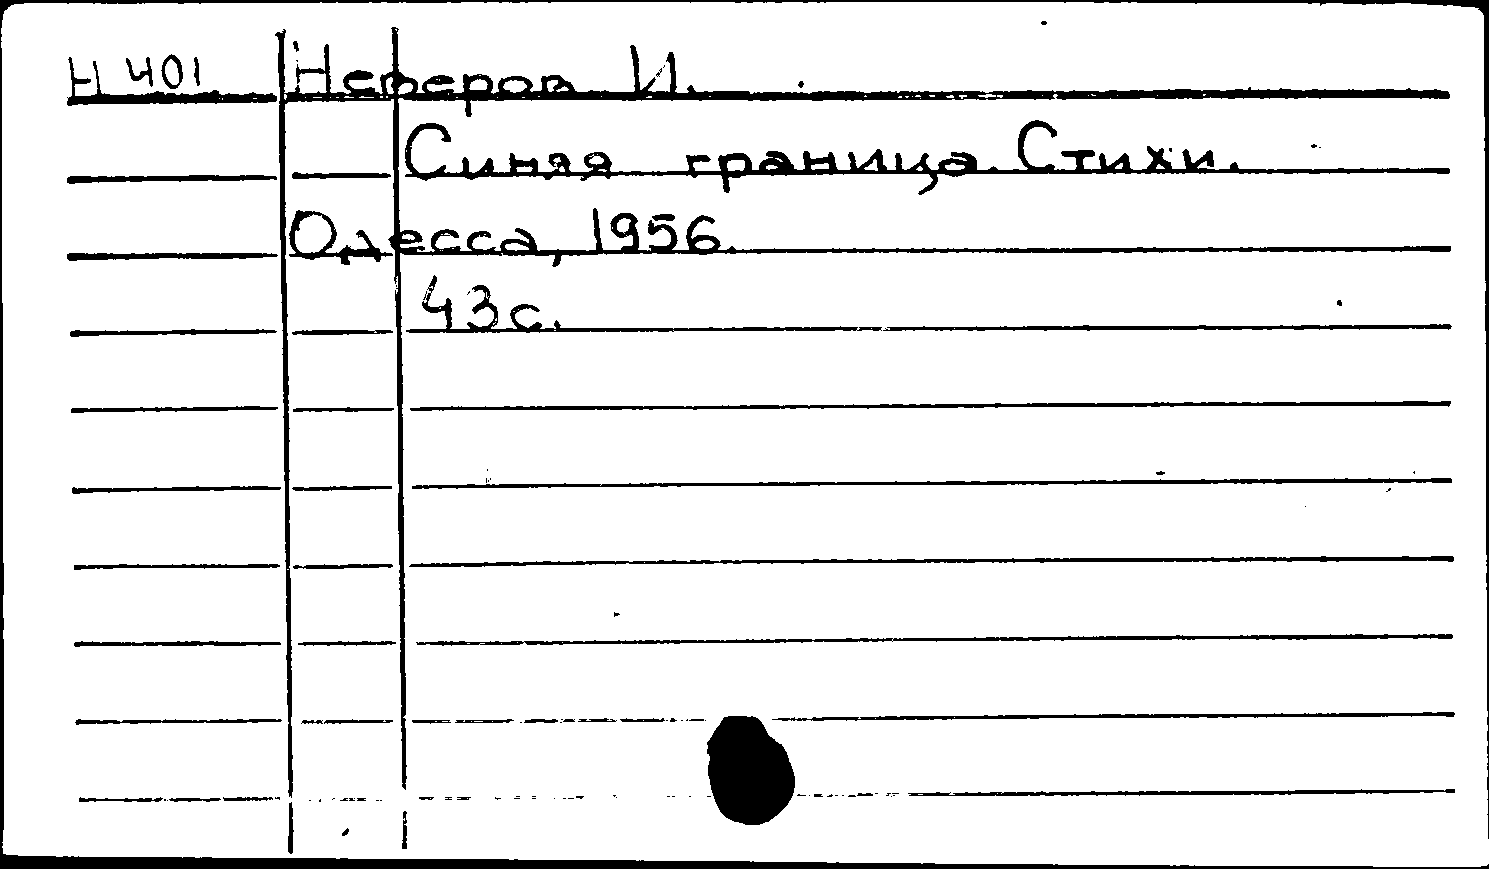 Н 401 Неверов И.
Синяя граница. Стихи.
Одесса, 1956.
43с.